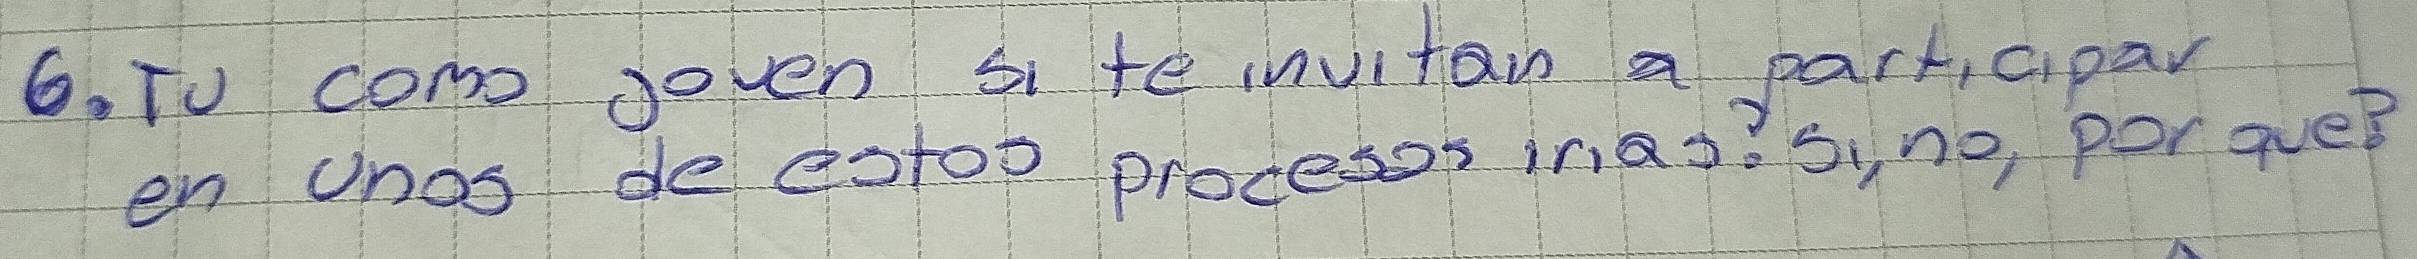 6. TU como joven si te invitan a participar
en unos de estos procesos irias? Si, no, por que?